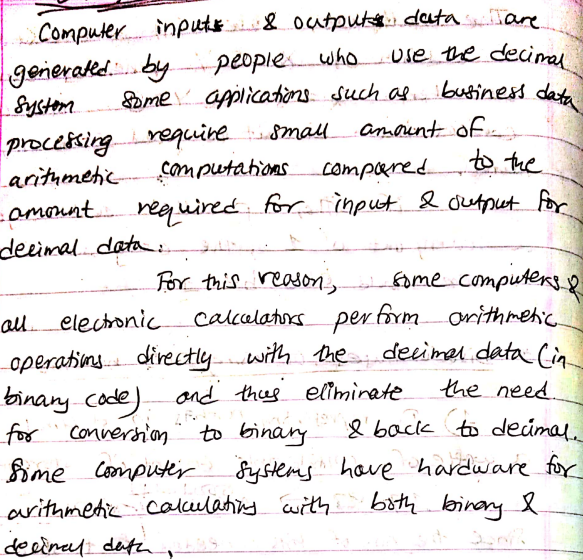 Computer input & output data are
generated by people who use the decimal
system some applications such as business data
processing require small amount of
arithmetic computations compared to the
amount required for input & output for
decimal data.
For this reason, some computers &
all electronic calculators perform arithmetic
operations directly with the decimal data (in
binary code) and thus eliminate the need
for conversion to binary & back to decimal.
Some computer systems have hardware for
arithmetic calculating with both binary &
decimal data,